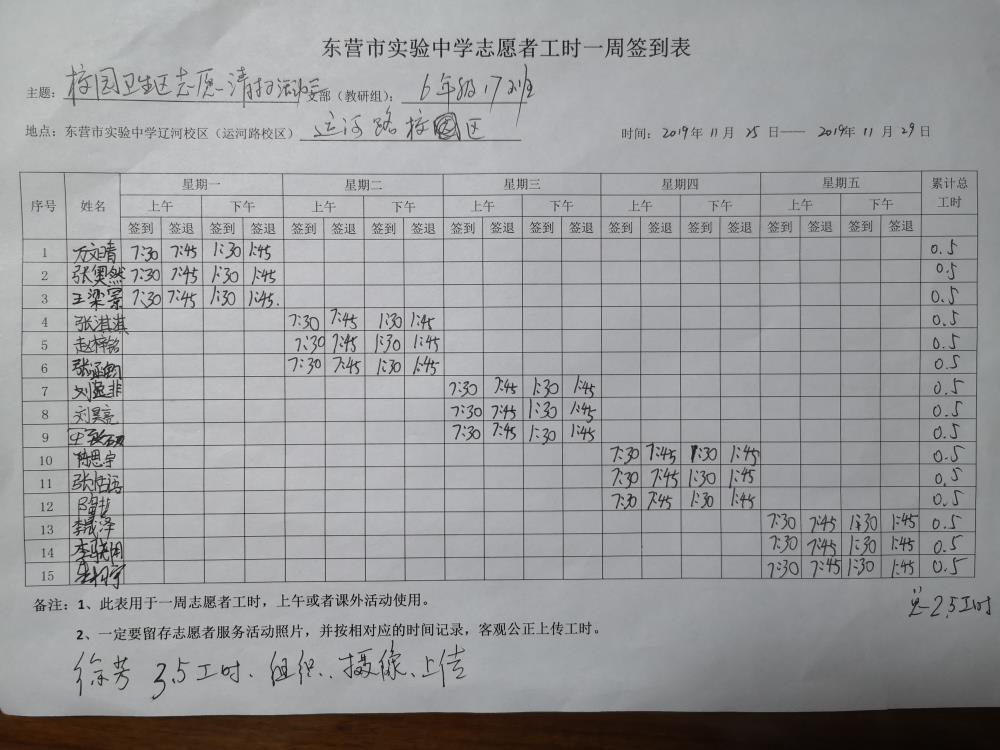 东营市实验中学志愿者工时一周签到表
主题: 校园卫生区志愿清扫活动 支部（教研组）: 6年级17班
地点: 东营市实验中学辽河校区（运河路校区） 运河路校区 时间: 2019年 11月 25日—— 2019年 11月 29日
序号 姓名 星期一 星期二 星期三 星期四 星期五 累计总工时
上午 下午 上午 下午 上午 下午 上午 下午 上午 下午
签到 签退 签到 签退 签到 签退 签到 签退 签到 签退 签到 签退 签到 签退 签到 签退 签到 签退 签到 签退
1 7:30 7:45 1:30 1:45 0.5
2 张奥然 7:30 7:45 1:30 1:45 0.5
3 王梁 7:30 7:45 1:30 1:45. 0.5
4 张淇淇 7:30 7:45 1:30 1:45 0.5
5 赵梓铭 7:30 7:45 1:30 1:45 0.5
6 张 7:30 7:45 1:30 1:45 0.5
7 刘 非 7:30 7:45 1:30 1:45 0.5
8 刘昊亮 7:30 7:45 1:30 1:45 0.5
9 7:30 7:45 1:30 1:45 0.5
10 陈思宇 7:30 7:45 1:30 1:45 0.5
11 张 7:30 7:45 1:30 1:45 0.5
12 7:30 7:45 1:30 1:45 0.5
13 李晟泽 7:30 7:45 1:30 1:45 0.5
14 李 7:30 7:45 1:30 1:45 0.5
15 7:30 7:45 1:30 1:45 0.5
备注: 1、此表用于一周志愿者工时，上午或者课外活动使用。
2.5工时
2、一定要留存志愿者服务活动照片，并按相对应的时间记录，客观公正上传工时。
徐芳 3.5工时、组织、摄像、上传